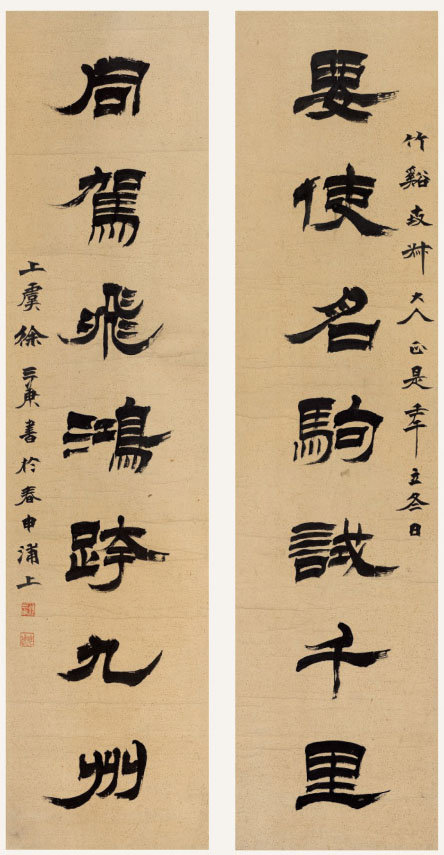 竹谿大人正是壬午立冬日
要使名駒試千里
同駕飛鴻跨九州
上虞徐三庚書於春申浦上